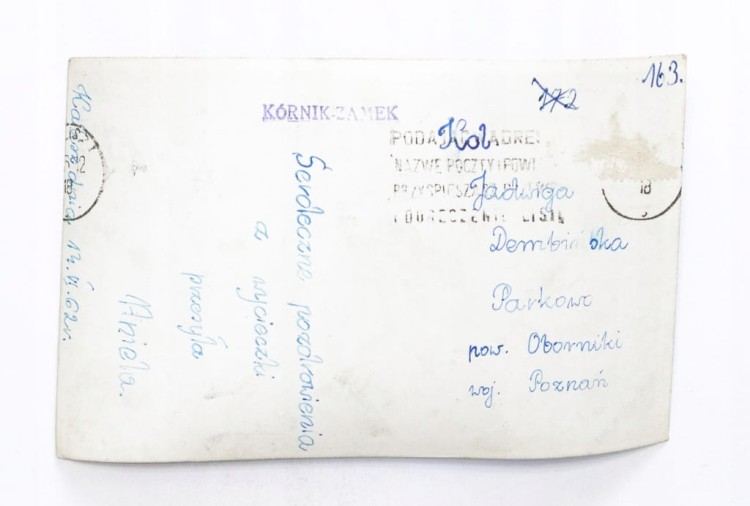 163.
172
KÓRNIK-ZAMEK
PODAJĄC ADRES
NAZWĘ POCZTY I POWI
PRZYSPIESZ
DORĘCZENIE LISTU
18
Kol
Jadwiga
Dembińska
Parkowo
pow. Oborniki
woj. Poznań
dnia 12.VI.62r.
Serdeczne pozdrowienia
z wycieczki
przesyła
Aniela.